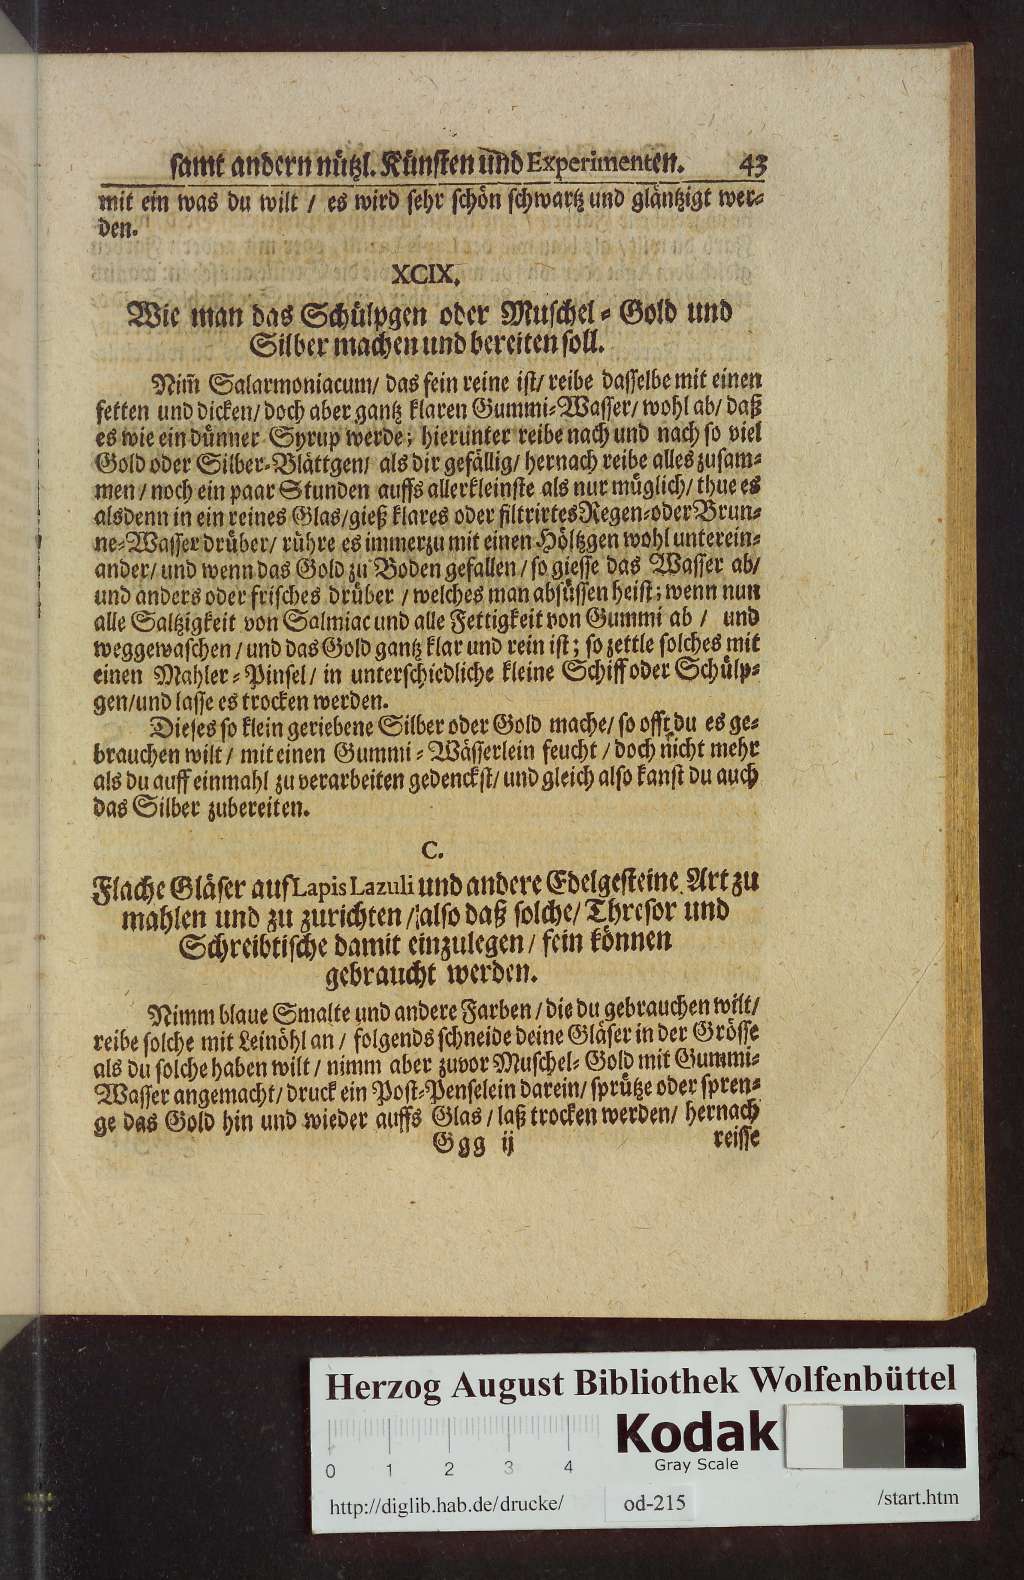 samt andern nützl. Künsten und Experimenten. 43
mit ein was du wilt / es wird sehr schön schwartz und gläntzigt wer-
den.
XCIX.
Wie man das Schülpgen oder Muschel-Gold und
Silber machen und bereiten soll.
Nim̃ Salarmoniacum/ das fein reine ist/ reibe dasselbe mit einen
fetten und dicken/ doch aber gantz klaren Gummi-Wasser/ wohl ab/ daß
es wie ein dünner Syrup werde; hierunter reibe nach und nach so viel
Gold oder Silber-Blättgen/ als dir gefällig/ hernach reibe alles zusam-
men / noch ein paar Stunden auffs allerkleinste als nur müglich/ thue es
alsdenn in ein reines Glas/gieß klares oder filtrirtes Regen-oder Brun-
ne-Wasser drüber/ rühre es immerzu mit einen Höltzgen wohl unterein-
ander/ und wenn das Gold zu Boden gefallen / so giesse das Wasser ab/
und anders oder frisches drüber / welches man absüssen heist; wenn nun
alle Saltzigkeit von Salmiac und alle Fettigkeit von Gummi ab / und
weggewaschen / und das Gold gantz klar und rein ist; so zettle solches mit
einen Mahler-Pinsel/ in unterschiedliche kleine Schiff oder Schülp-
gen/und lasse es trocken werden.
Dieses so klein geriebene Silber oder Gold mache/ so offt du es ge-
brauchen wilt / mit einen Gummi-Wässerlein feucht / doch nicht mehr
als du auff einmahl zu verarbeiten gedenckst/ und gleich also kanst du auch
das Silber zubereiten.
C.
Flache Gläser auf Lapis Lazuli und andere Edelgesteine Art zu
mahlen und zu zurichten / also daß solche/ Thresor und
Schreibtische damit einzulegen / fein können
gebraucht werden.
Nimm blaue Smalte und andere Farben / die du gebrauchen wilt/
reibe solche mit Leinöhl an / folgends schneide deine Gläser in der Grösse
als du solche haben wilt / nimm aber zuvor Muschel-Gold mit Gummi-
Wasser angemacht/ druck ein Post-Penselein darein/ sprütze oder spren-
ge das Gold hin und wieder auffs Glas / laß trocken werden/ hernach
Ggg ij reisse
Herzog August Bibliothek Wolfenbüttel
Kodak
Gray Scale
0 1 2 3 4
http://diglib.hab.de/drucke/ od-215 /start.htm